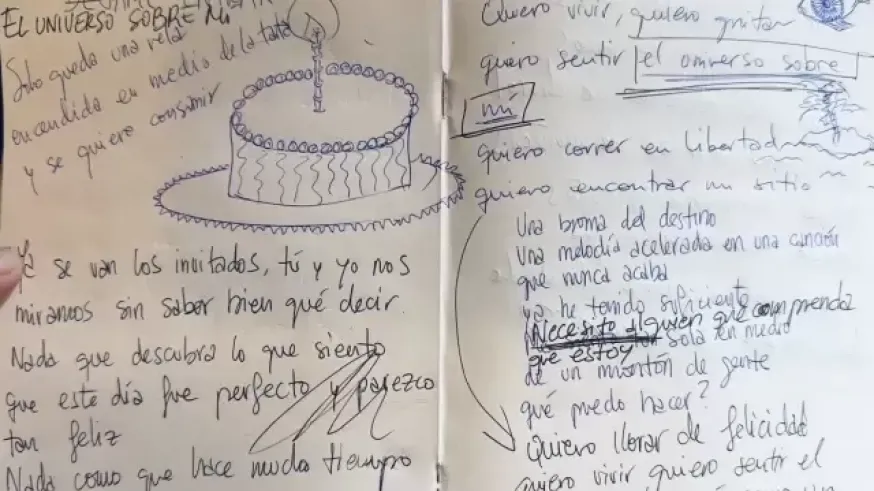 EL UNIVERSO SOBRE MÍ
Solo queda una vela
encendida en medio de la tarta
y se quiere consumir
Ya se van los invitados, tú y yo nos
miramos sin saber bien qué decir.
Nada que descubra lo que siento
que este día fue perfecto y parezco
tan feliz
Nada como que hace mucho tiempo
Quiero vivir, quiero gritar
quiero sentir el universo sobre
mí
quiero correr en libertad
quiero encontrar mi sitio
Una broma del destino
Una melodía acelerada en una canción
que nunca acaba
ya he tenido suficiente
Necesito alguien que comprenda
que estoy sola en medio
de un montón de gente
qué puedo hacer?
Quiero llorar de felicidad
quiero vivir quiero sentir el